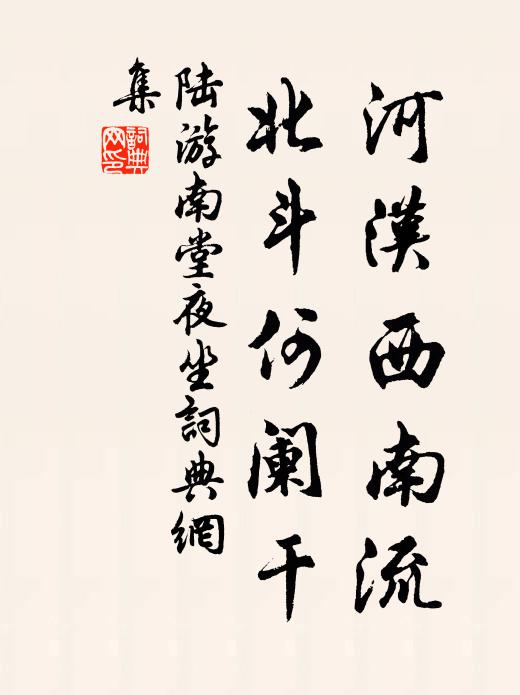 河漢西南流
北斗何闌干
陆游南堂夜坐詞典網
集
詞典
网印